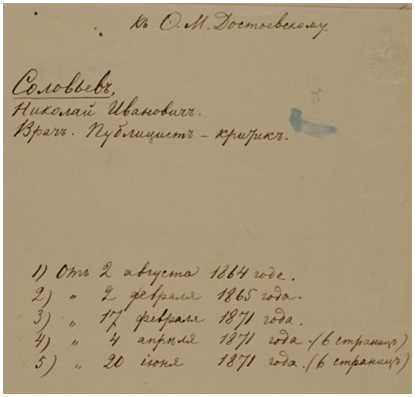 Къ Ѳ. М. Достоевскому.
Соловьевъ,
Николай Ивановичъ.
Врачъ. Публицистъ – критикъ.
1) Отъ 2 августа 1864 годе.
2) „ 2 февраля 1865 года.
3) „ 17 февраля 1871 года.
4) „ 4 апрѣля 1871 года. (6 страницъ)
5) „ 20 іюня 1871 года. (6 страницъ)